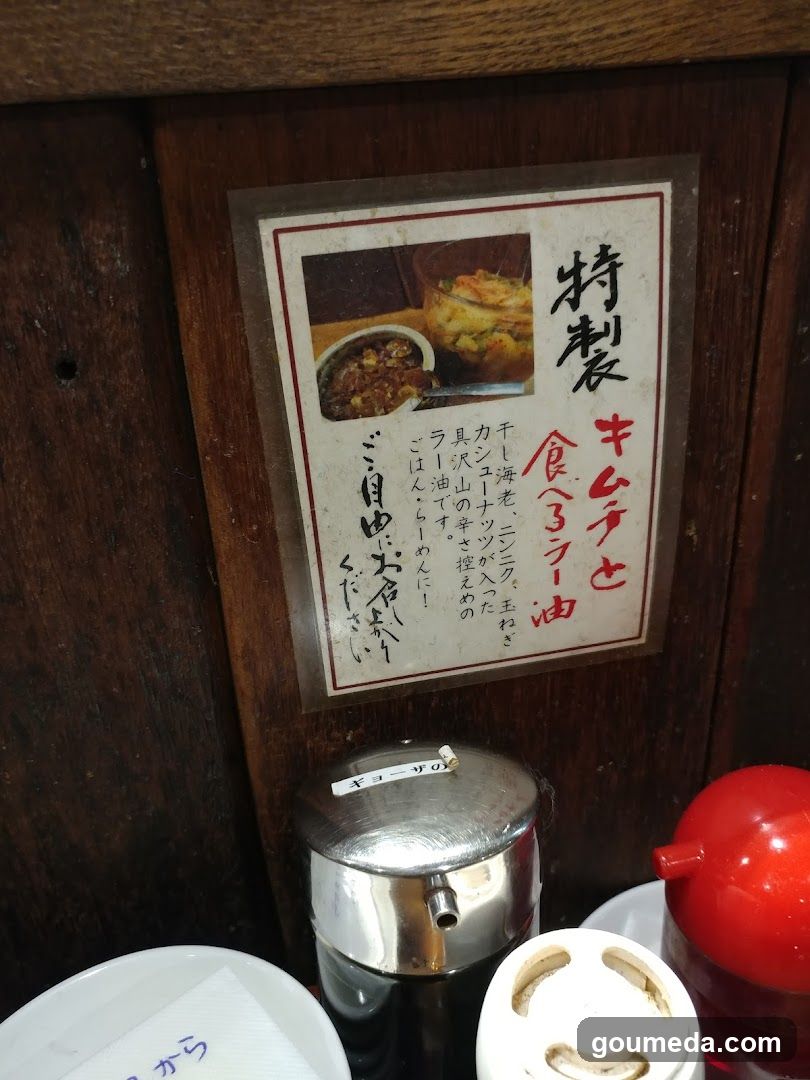 特製
キムチと
食べるラー油
干し海老、ニンニク、玉ねぎ
カシューナッツが入った
具沢山の辛さ控えめの
ラー油です。
ごはん・らーめんに!
ご自由にお召し上がり
ください
ギョーザの
から
goumeda.com